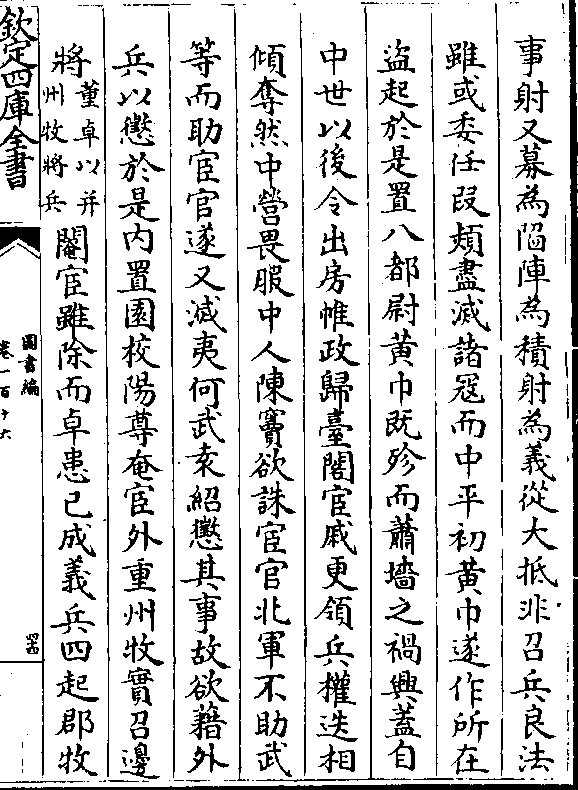 事射又募為䧟陣為積射為義從大抵非召兵良法
雖或委任段熲盡滅諸冦而中平初黄巾遂作所在
盜起於是置八都尉黄巾既殄而蕭墻之禍興蓋自
中世以後令出房帷政歸臺閣宦戚更領兵權迭相
傾奪然中營畏服中人陳竇欲誅宦官北軍不助武
等而助宦官遂又滅夷何武袁紹懲其事故欲藉外
兵以懲於是内置園校陽尊奄宦外重州牧實召邊
將董卓以并州牧將兵閹宦雖除而卓患已成義兵四起郡牧
欽定四庫全書
圖書編
卷一百十六